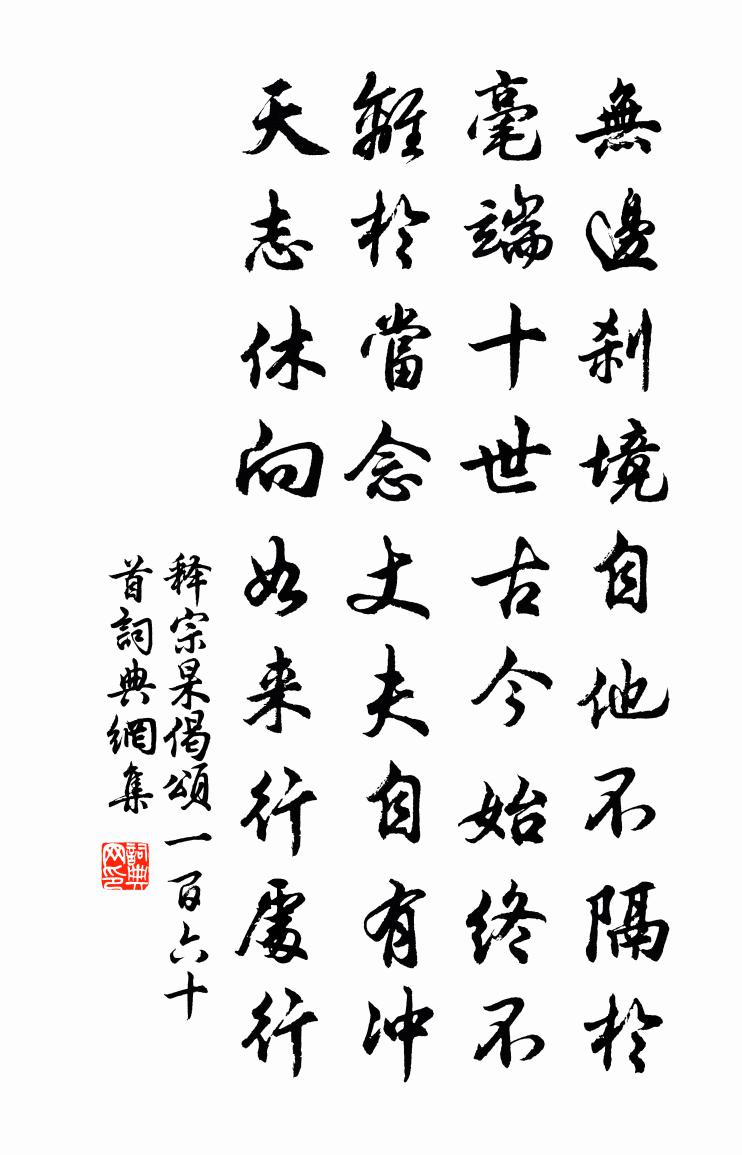 無邊刹境自他不隔於
毫端十世古今始終不
離於當念丈夫自有沖
天志休向如来行處行
释宗杲偈頌一百六十
首詞典網集
詞典网印